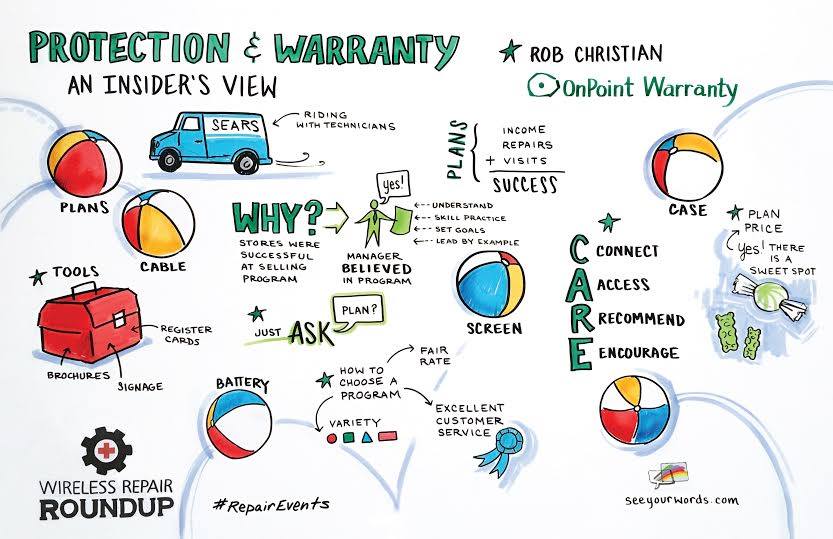 PROTECTION & WARRANTY
AN INSIDER'S VIEW
★ ROB CHRISTIAN
OnPoint Warranty
SEARS
RIDING
WITH TECHNICIANS
PLANS
INCOME
REPAIRS
+ VISITS
SUCCESS
PLANS
CABLE
WHY?
STORES WERE
SUCCESSFUL
AT SELLING
PROGRAM
yes!
MANAGER
BELIEVED
IN PROGRAM
UNDERSTAND
SKILL PRACTICE
SET GOALS
LEAD BY EXAMPLE
CASE
★ PLAN
PRICE
yes! THERE
IS A
SWEET SPOT
CARE
CONNECT
ACCESS
RECOMMEND
ENCOURAGE
★ TOOLS
REGISTER
CARDS
BROCHURES
SIGNAGE
★ JUST ASK
PLAN?
SCREEN
BATTERY
★ HOW TO
CHOOSE A
PROGRAM
FAIR
RATE
VARIETY
EXCELLENT
CUSTOMER
SERVICE
WIRELESS REPAIR
ROUNDUP
#RepairEvents
seeyourwords.com